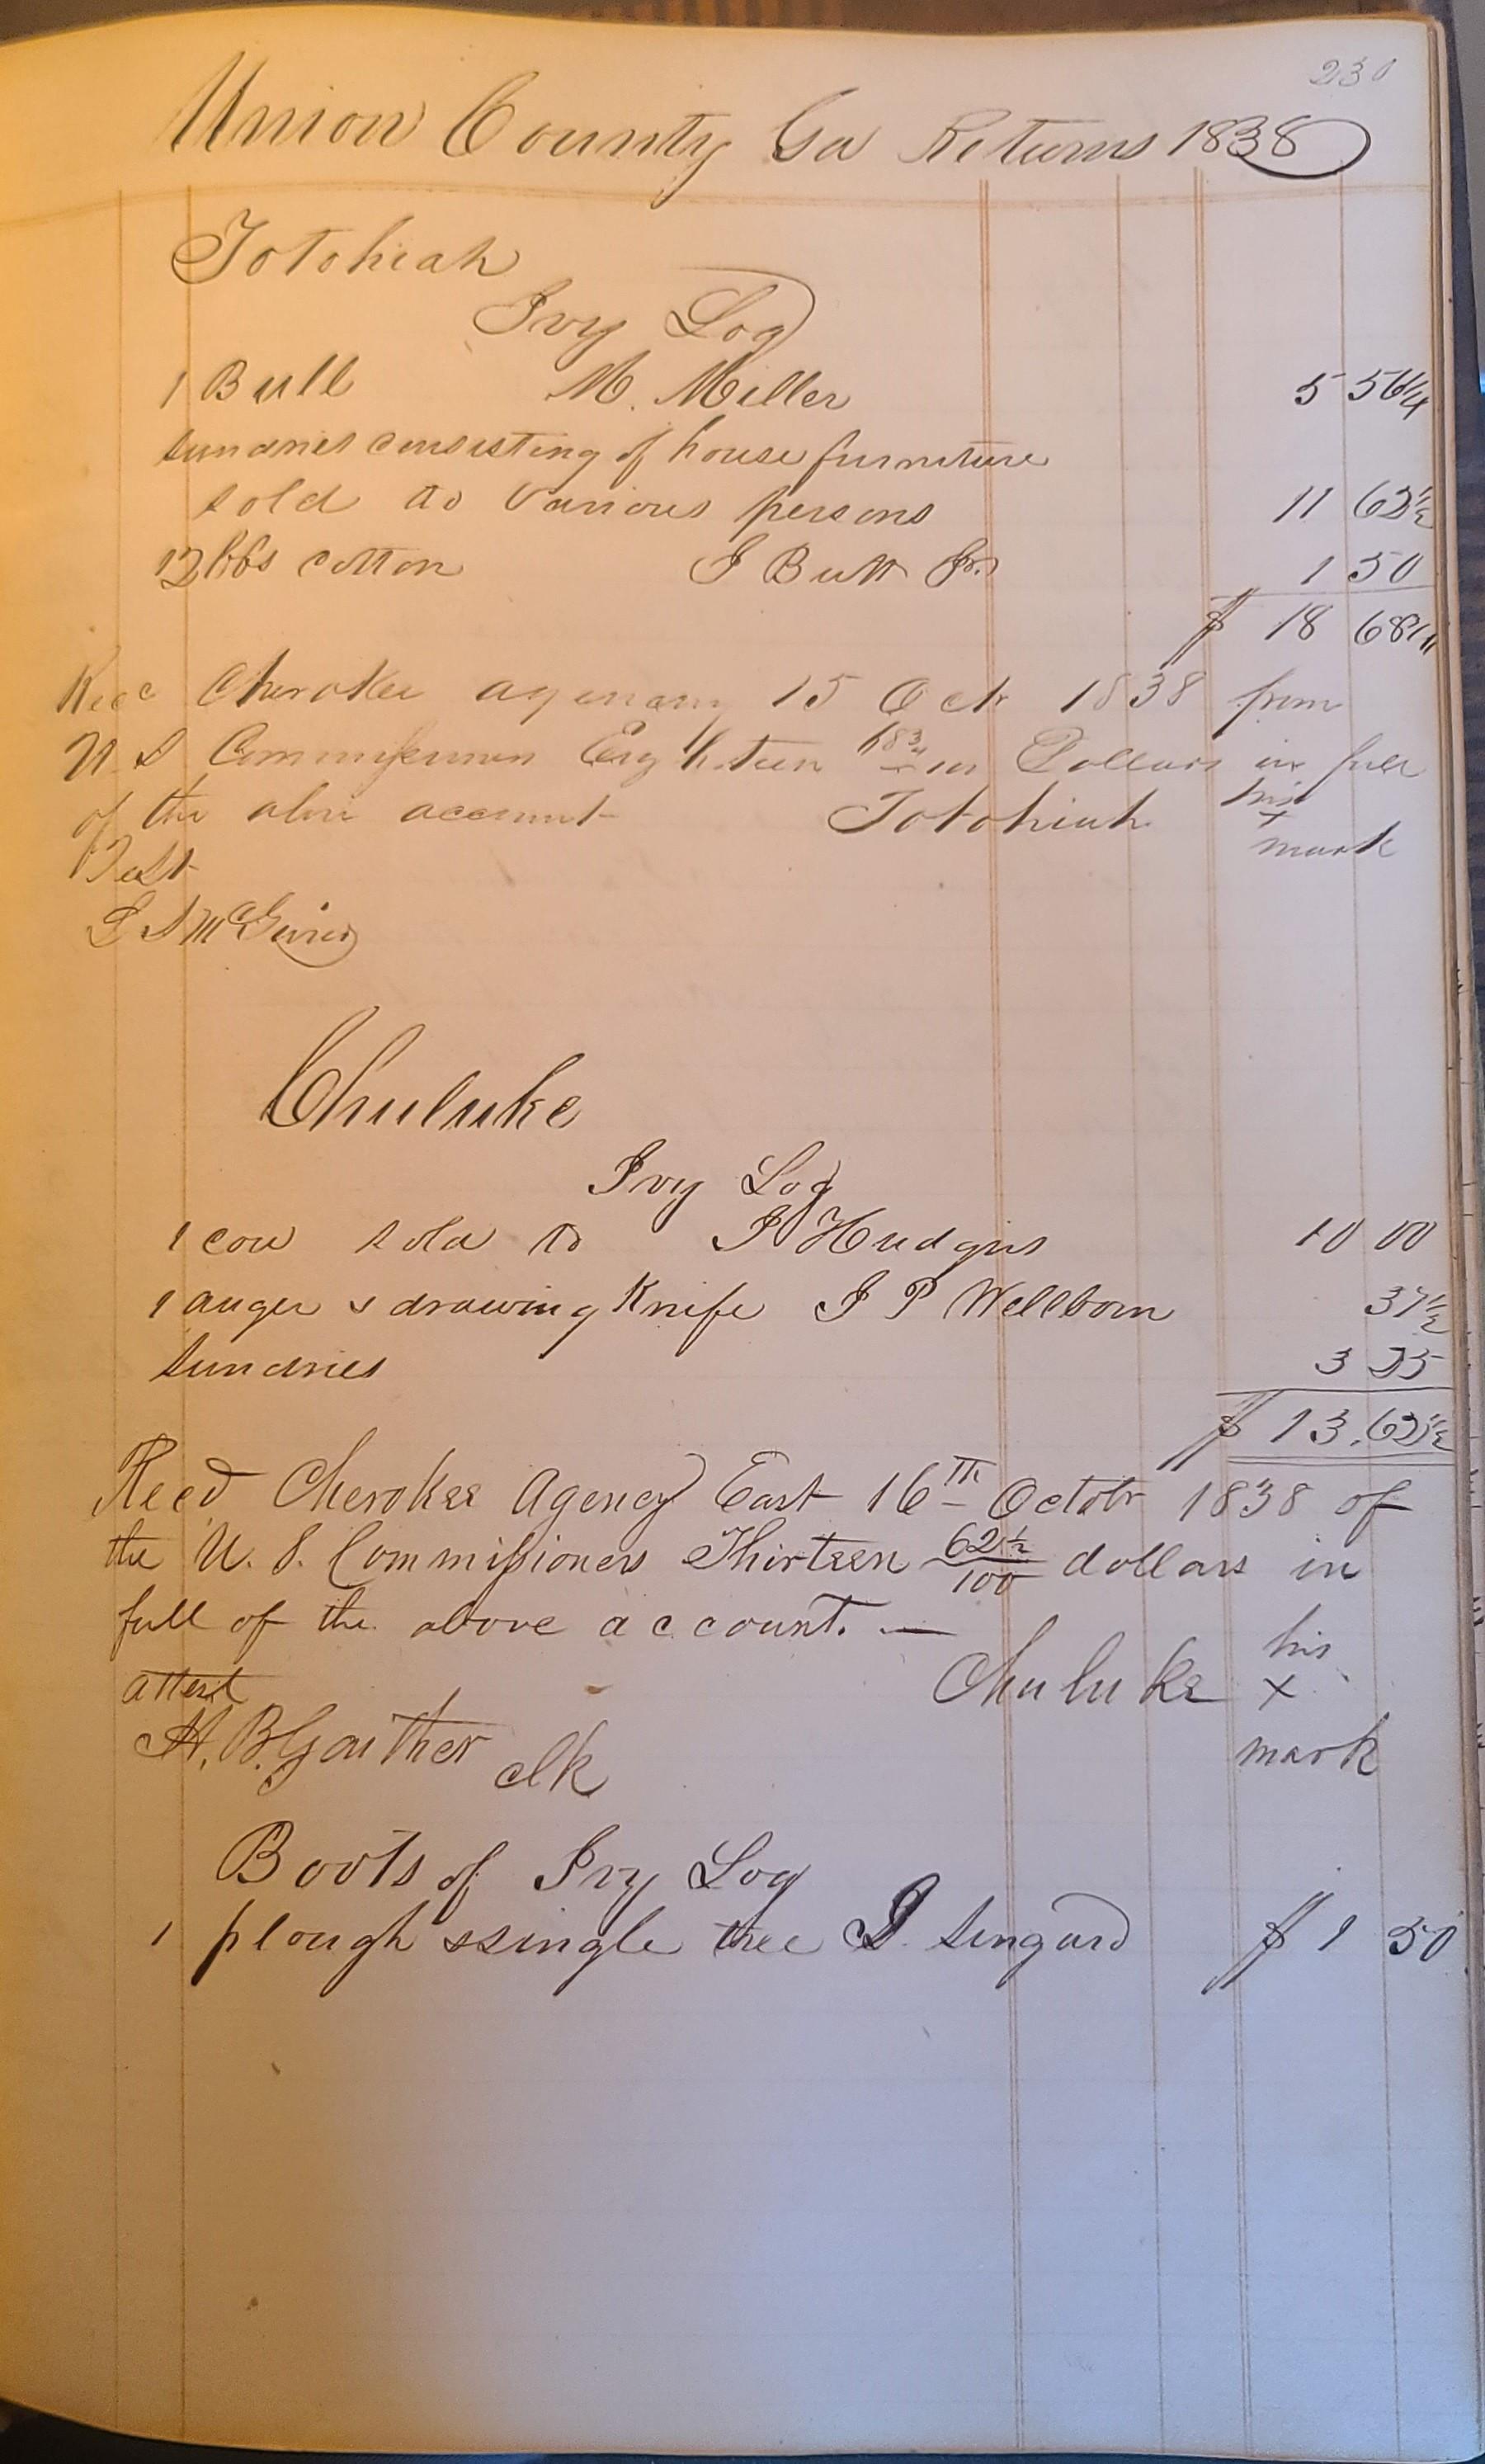 230
Union County Ga Returns 1838
Totohiah
Ivy Log
1 Bull M. Miller 5 56 1/4
sundries consisting of house furniture
sold to various persons 11 62 1/2
12 lbs cotton J Butt Jr. 1 50
$ 18 68
Recd Cherokee agency 15 Oct 1838 from
U S Commissioners Eighteen 68 3/4 Dollars in full
of the above account Totohiah his x mark
Test
Chuluke
Ivy Log
1 cow sold to J Hudgins 10 00
1 auger & drawing Knife J P Wellborn 37 1/2
sundries 3 25
$ 13.62 1/2
Recd Cherokee Agency East 16th Octobr 1838 of
the U. S. Commissioners Thirteen 62 1/2/100 dollars in
full of the above account. —
attest Chuluke his x mark
H. B. Gaither clk
Boots of Ivy Log
1 plough & single tree $ 1 50